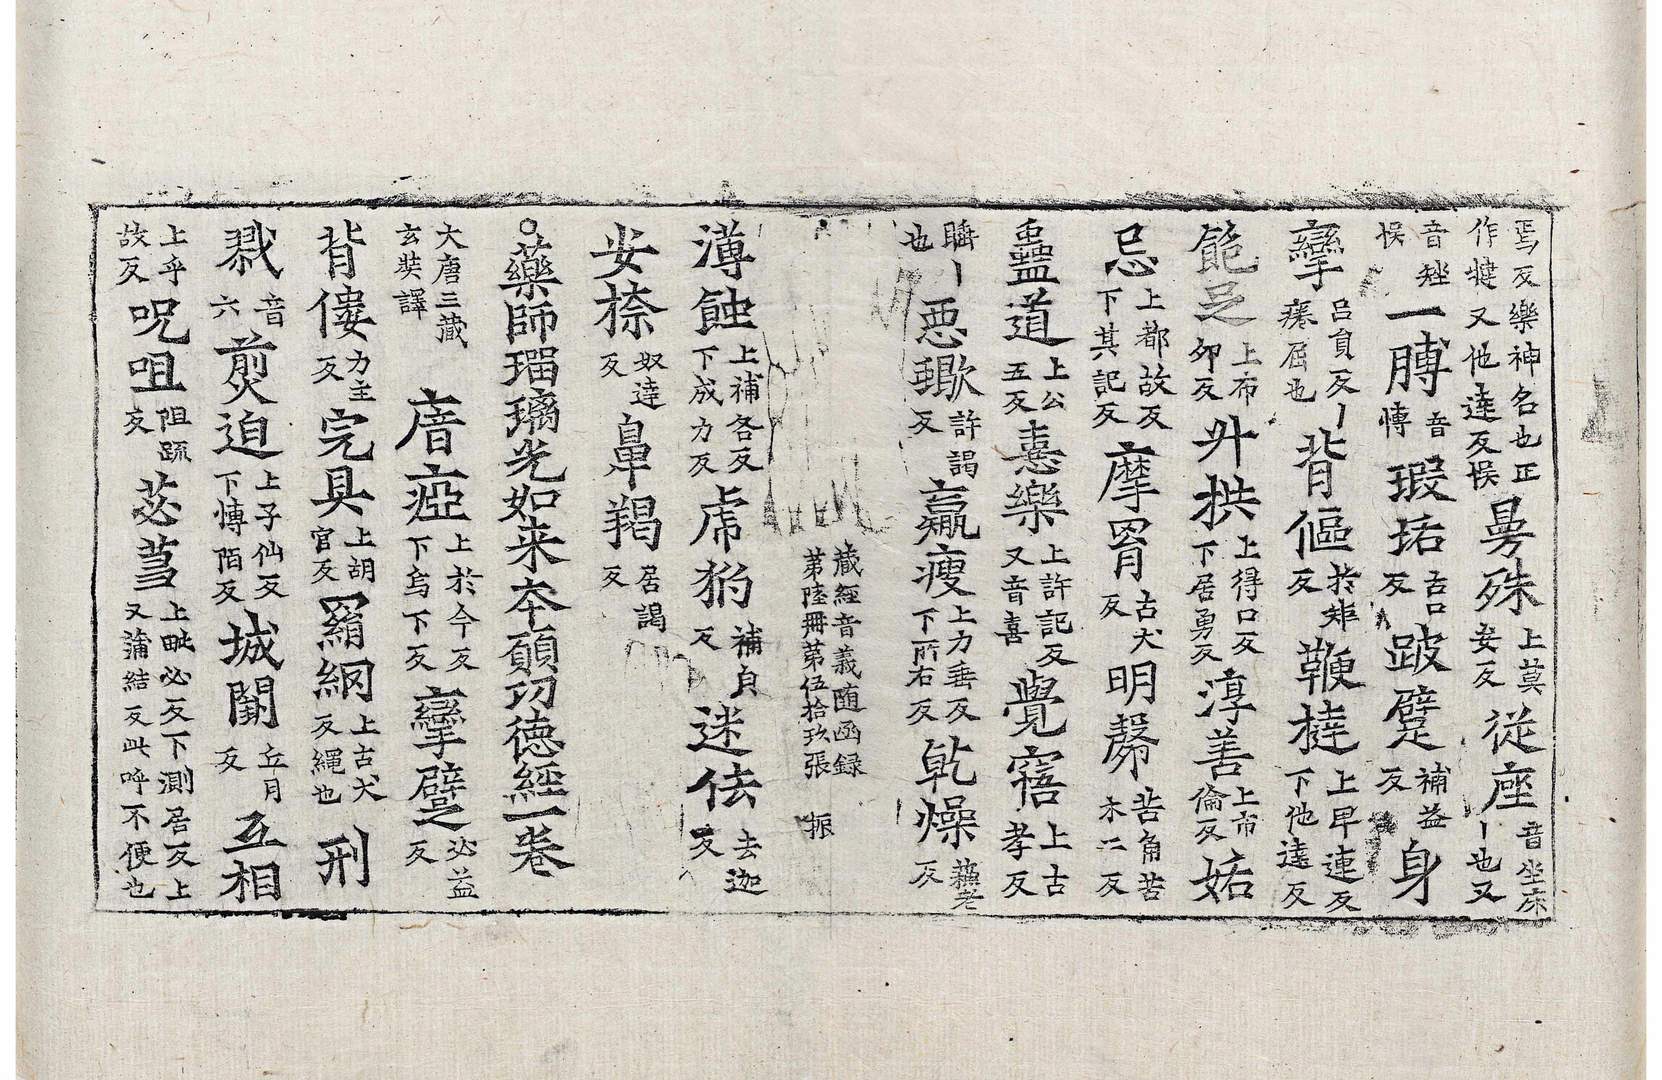 焉反樂神名也正作揵又他達反悮曼殊上莫安反従座音坐床ー也又
音矬悮一膊音慱瑕坧古口反跛躄補益反身
攣呂負反ー瘝屈也背傴於矩反鞭撻上早連反下他達反
飽足上布夘反升拱上得口反下居勇反淳善上市倫反姤
忌上都故反下其記反摩罥古犬反明髴苦角苦木二反
蠱道上公五反憙樂上許記反又音喜覺寤上古孝反
瞬ー也惡獙許謁反羸瘦上力垂反下所右反乾燥蘓老反
藏經音義随函録第陸冊第伍拾玖張 振
薄蝕上補各反下成力反虎豹補皃反迷佉去迦反
安捺奴達反鼻羯居謁反
○藥師瑠璃光如来本願㓛德經一卷
大唐三藏玄奘譯 瘖瘂上於今反下烏下反攣躄必益反
背僂力主反完具上胡官反羂網上古犬反繩也刑
戮音六煎迫上子仙反下慱陌反城闕丘月反互相
上乎故反呪咀阻䟽反苾蒭上毗必反下測居反上又蒲結反此呼不便也